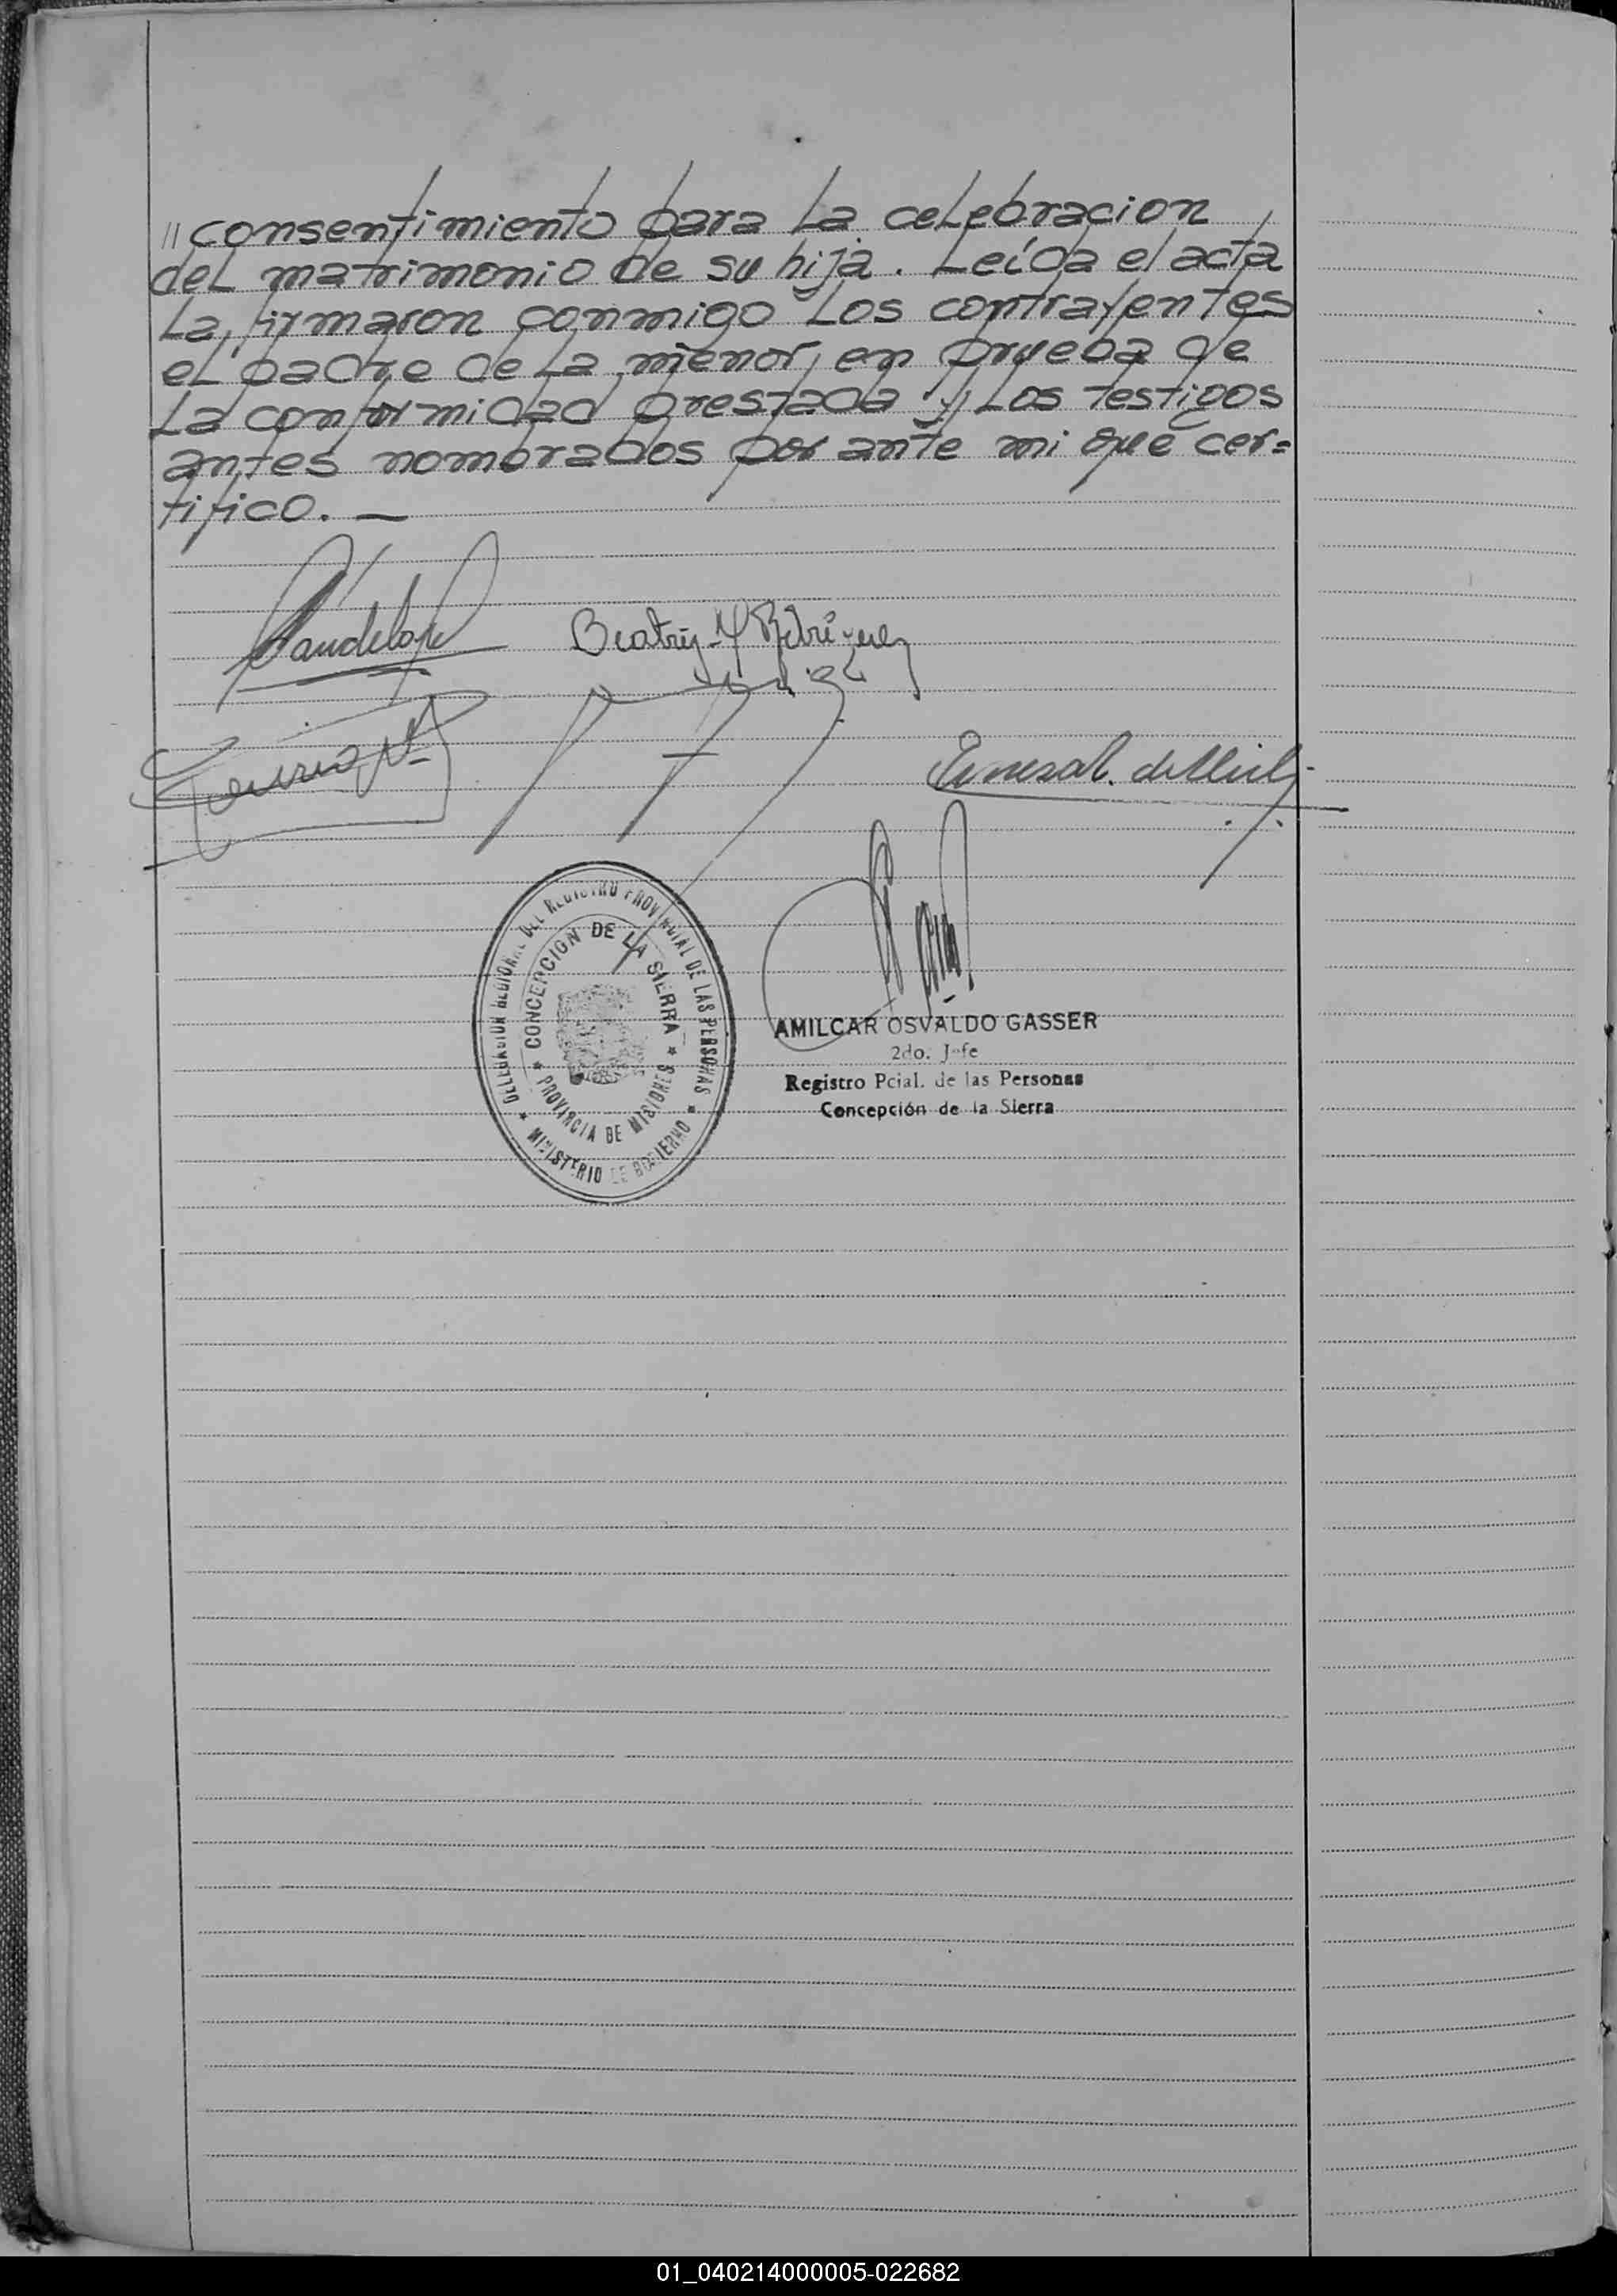 "consentimiento para la celebracion
del matrimonio de su hija. Leída el acta
la firmaron conmigo los contrayentes
el padre de la menor, en prueba de
la conformidad prestada y los testigos
antes nombrados por ante mi que cer=
tifico. —
Beatriz
DELEGACION REGIONAL DEL REGISTRO PROVINCIAL DE LAS PERSONAS
CONCEPCION DE LA SIERRA
★ PROVINCIA DE MISIONES ★
★ MINISTERIO DE GOBIERNO ★
AMILCAR OSVALDO GASSER
2do. Jefe
Registro Pcial. de las Personas
Concepción de la Sierra
01_040214000005-022682